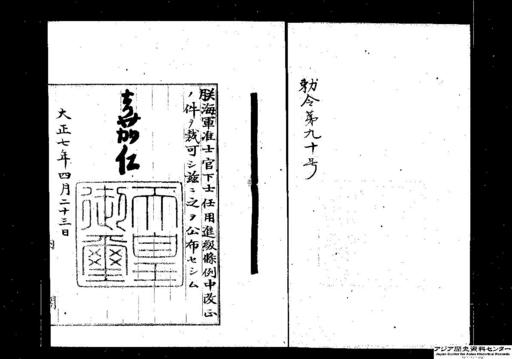 勅令第九十号
朕海軍准士官下士任用進級條例中改正
ノ件ヲ裁可シ茲ニ之ヲ公布セシム
嘉仁
天皇御璽
大正七年四月二十三日
内閣
アジア歴史資料センター
Japan Center for Asian Historical Records